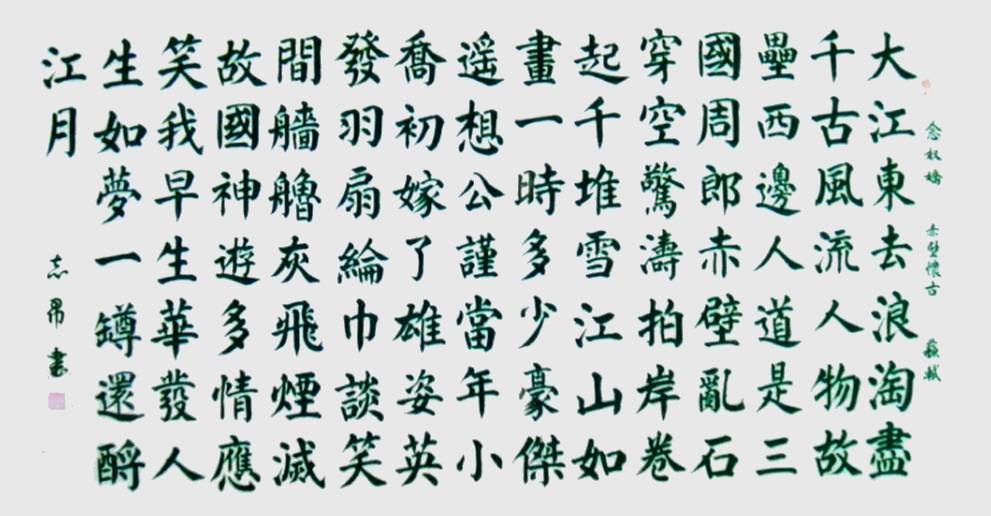 念奴嬌 赤壁懷古 蘇軾
大江東去浪淘盡
千古風流人物故
壘西邊人道是三
國周郎赤壁亂石
穿空驚濤拍岸卷
起千堆雪江山如
畫一時多少豪傑
遥想公謹當年小
喬初嫁了雄姿英
發羽扇綸巾談笑
間艢艣灰飛煙滅
故國神遊多情應
笑我早生華發人
生如夢一罇還酹
江月
志昂書